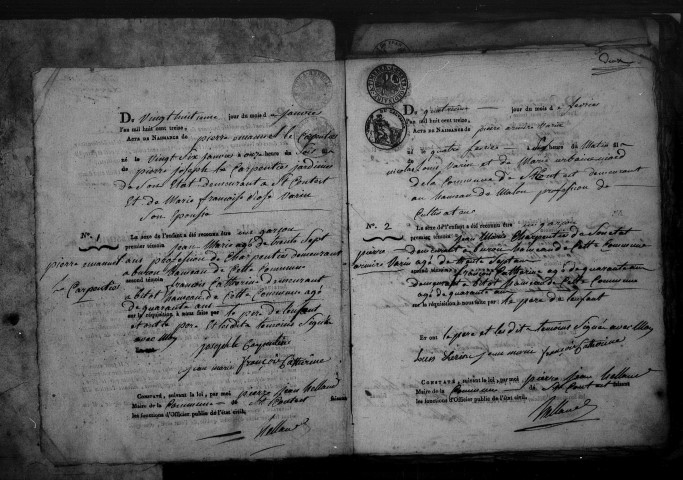 Du vingt huitieme jour du mois de janvier
l'an mil huit cent treize,
ACTE DE NAISSANCE de pierre manuel le Carpentier
né le vingt six janvier à onze heures du
pierre joseph le Carpentier jardinier
de son Etat demeurant a St Contest
Et de Marie francoise
Son Epouse
N.° 1
pierre manuel
le Carpentier
Le sexe de l'enfant a été reconnu être un garçon
premier témoin jean Marie agé de trente sept
ans profession de Charpentier demeurant
a buron hameau de Cette Commune
second témoin francois Catherine demeurant
a bitot hameau de Cette Commune agé
de quarante ans
sur la réquisition à nous faite par le pere de l'enfant
et ont le pere et lesdits temoins Signé
avec Moy
joseph le Carpentier
jean marie françois Catherine
CONSTATÉ, suivant la loi, par moi pierre jean hellaud
Maire de la Commune de St Contest faisant
les fonctions d'Officier public de l'état civil.
deux
Du quatrieme jour du mois de fevrier
l'an mil huit cent treize,
ACTE DE NAISSANCE de pierre
né le quatre fevrier à heures du Matin
de la Commune de St Contest demeurant
au hameau de profession de
N.° 2
pierre
Le sexe de l'enfant a été reconnu être un garçon
premier témoin jean Marie Charpentier de Son etat
demeurant a buron hameau de Cette Commune
agé de trente Sept ans
second témoin francois Catherine agé de quarante ans
demeurant a bitot hameau de Cette Commune
agé de quarante ans
sur la réquisition à nous faite par le pere de l'enfant
Et ont le pere et les dits temoins Signé avec Moy
jean marie françois Catherine
CONSTATÉ, suivant la loi, par moi pierre jean hellaud
Maire de la Commune de St Contest faisant
les fonctions d'Officier public de l'état civil.